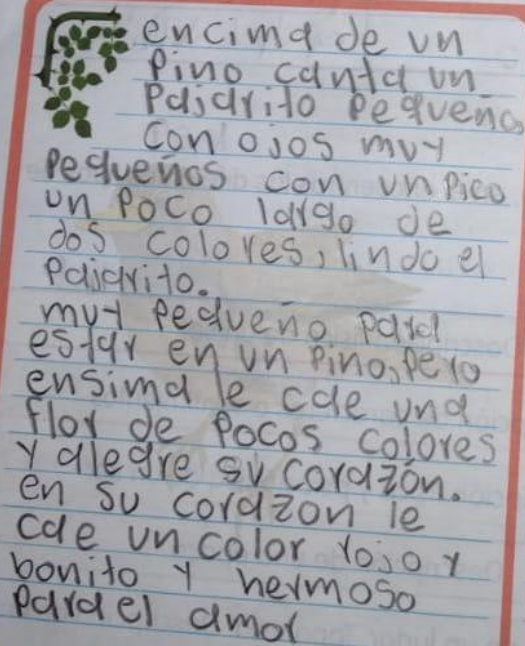 encima de un
Pino canta un
Pajarito Pequeño
con ojos muy
Pequeños con un Pico
un Poco largo de
dos colores, lindo el
Pajarito.
muy Pequeño para
estar en un Pino, pero
ensima le cae una
flor de Pocos colores
y alegre su corazón.
en su corazon le
cae un color rojo y
bonito y hermoso
para el amor